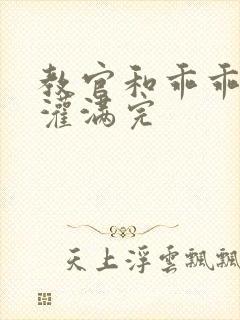 教官和乖乖
灌满完
天上浮雲飄飄